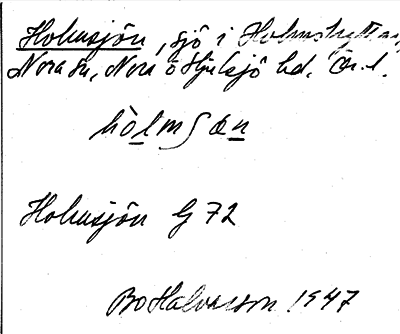 Holmsjön, sjö i Holmshyttan,
Nora sn, Nora o Hjulsjö hd. Ör.l.
hòlmʃøn
Holmsjön G 72
Bo Halvarson 1947